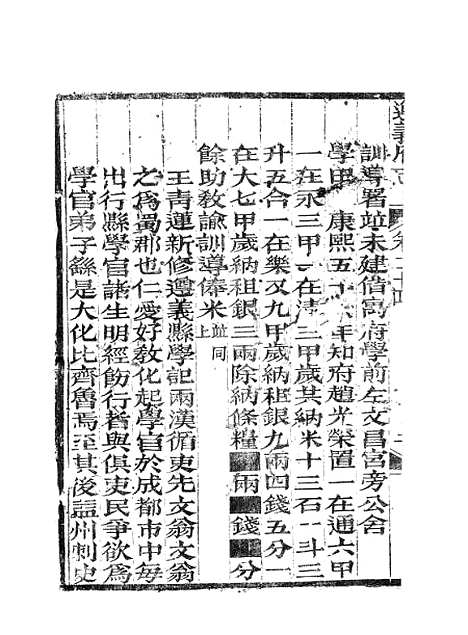 遵義府志 卷二十四
訓導署竝未建借寓府學前左文昌宮旁公舍
學田 康熙五十六年知府趙光榮置一在通六甲
一在永三甲一在清三甲歲其納米十三石一斗三
升五合一在樂又九甲歲納租銀九兩四錢五分一
在大七甲歲納租銀三兩除納條糧 兩 錢 分
餘助教諭訓導俸米竝同上
王青蓮新修遵義縣學記兩漢循吏先文翁文翁
之為蜀郡也仁愛好教化起學官於成都市中每
出行縣學官諸生明經飭行者與俱吏民爭欲為
學官弟子繇是大化比齊魯焉至其後益州刺史